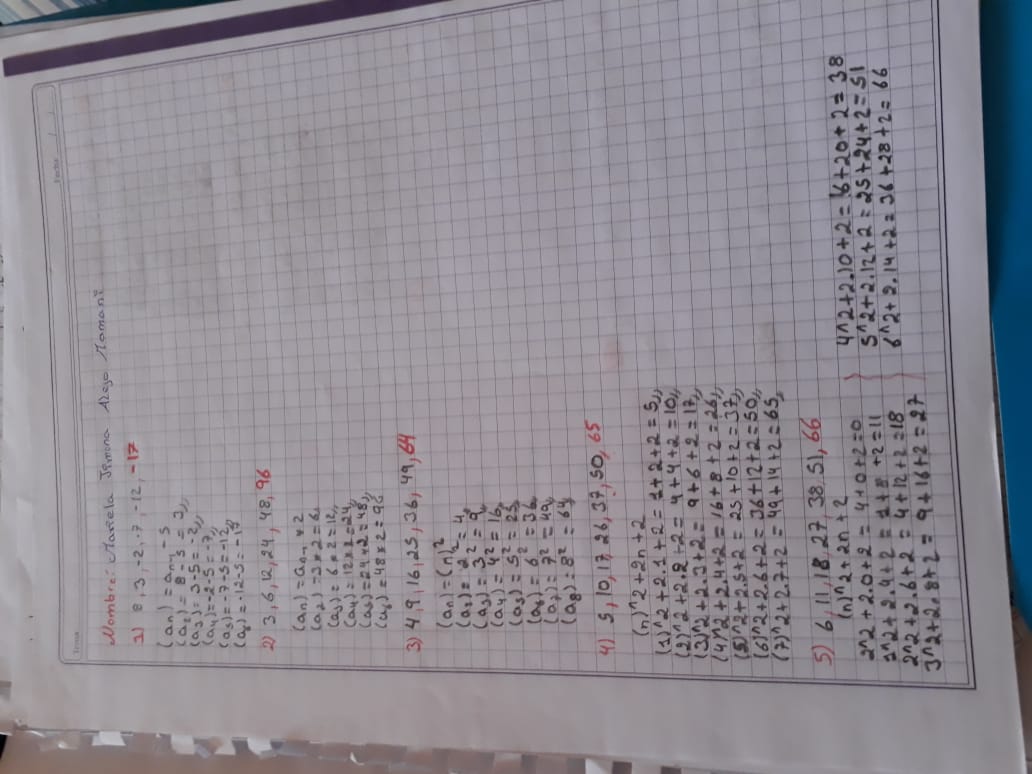 Tema:
Fecha: / /
Nombre: Mariela Jimena Alejo Mamani
1) 8, 3, -2, -7, -12, -17
(an) = an - 5
(a2) = 8 - 5 = 3,,
(a3) = 3-5 = -2,,
(a4) = -2-5 = -7,,
(a5) = -7-5 = -12,,
(a6) = -12-5 = -17
2) 3, 6, 12, 24, 48, 96
(an) = an-1 × 2
(a2) = 3 × 2 = 6
(a3) = 6 × 2 = 12,,
(a4) = 12 × 2 = 24,,
(a5) = 24 × 2 = 48,,
(a6) = 48 × 2 = 96
3) 4, 9, 16, 25, 36, 49, 64
(an) = (n)²
(a2) = 2² = 4,,
(a3) = 3² = 9,,
(a4) = 4² = 16,,
(a5) = 5² = 25,,
(a6) = 6² = 36,,
(a7) = 7² = 49,,
(a8) = 8² = 64,,
4) 5, 10, 17, 26, 37, 50, 65
(n)^2 + 2n + 2
(1)^2 + 2.1 + 2 = 1+2+2 = 5,,
(2)^2 + 2.2 + 2 = 4+4+2 = 10,,
(3)^2 + 2.3 + 2 = 9+6+2 = 17,,
(4)^2 + 2.4 + 2 = 16+8+2 = 26,,
(5)^2 + 2.5 + 2 = 25+10+2 = 37,,
(6)^2 + 2.6 + 2 = 36+12+2 = 50,,
(7)^2 + 2.7 + 2 = 49+14+2 = 65,,
5) 6, 11, 18, 27 38, 51, 66
(n)^2 + 2n + 2
2^2 + 2.0 + 2 = 4+0+2=0
+ 2.4 + 2 = +8 +2 = 11
2^2 + 2.6 + 2 = 4+12+2=18
3^2 + 2.8 + 2 = 9+16+2=27
4^2+2.10+2=16+20+2=38
5^2+2.12+2=25+24+2=51
6^2+2.14+2=36+28+2=66